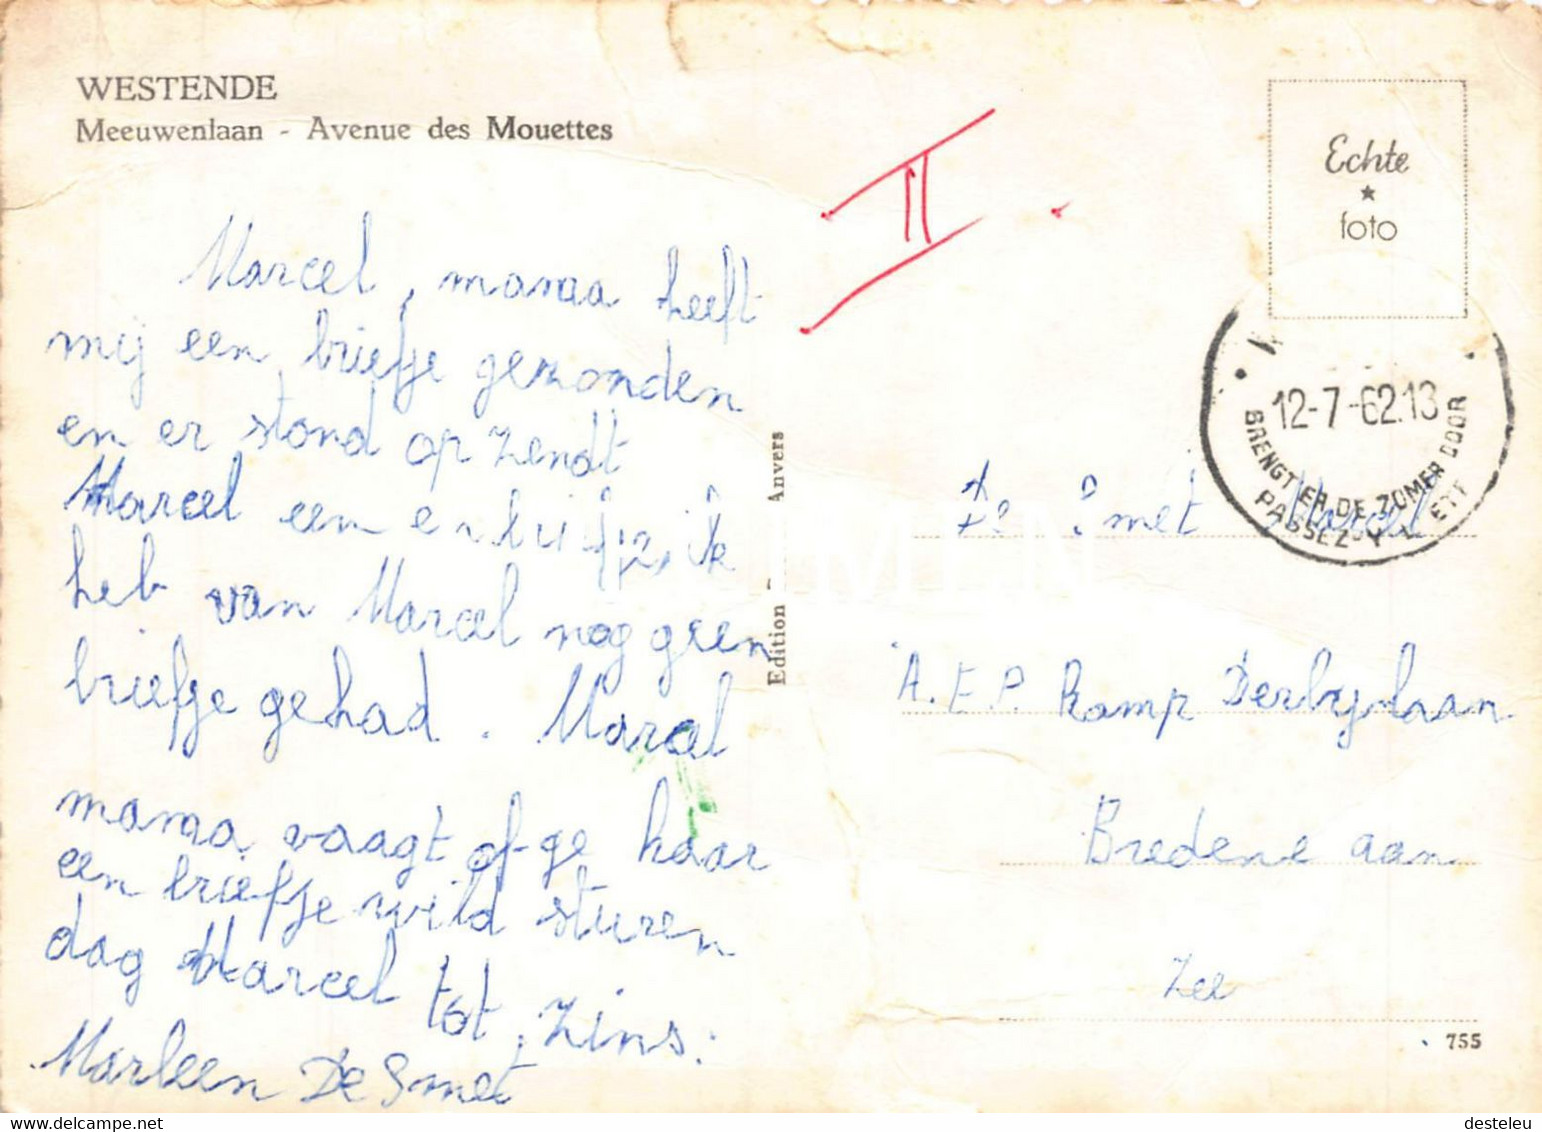 WESTENDE
Meeuwenlaan - Avenue des Mouettes
Echte
foto
12-7-62.13
BRENGT ER DE ZOMER DOOR
PASSEZ-Y L'ETE
Marcel, mama heeft
mij een briefje gezonden
en er stond op zendt
Marcel een
ik
heb van Marcel nog geen
briefje gehad. Marcel
mama vraagt of ge haar
een briefje wild sturen
dag Marcel tot zins:
Marleen De Smet
Edition - Anvers
De Smet Marcel
A.E.P. Kamp Derbylaan
Bredene aan
Zee
755
www.delcampe.net
desteleu